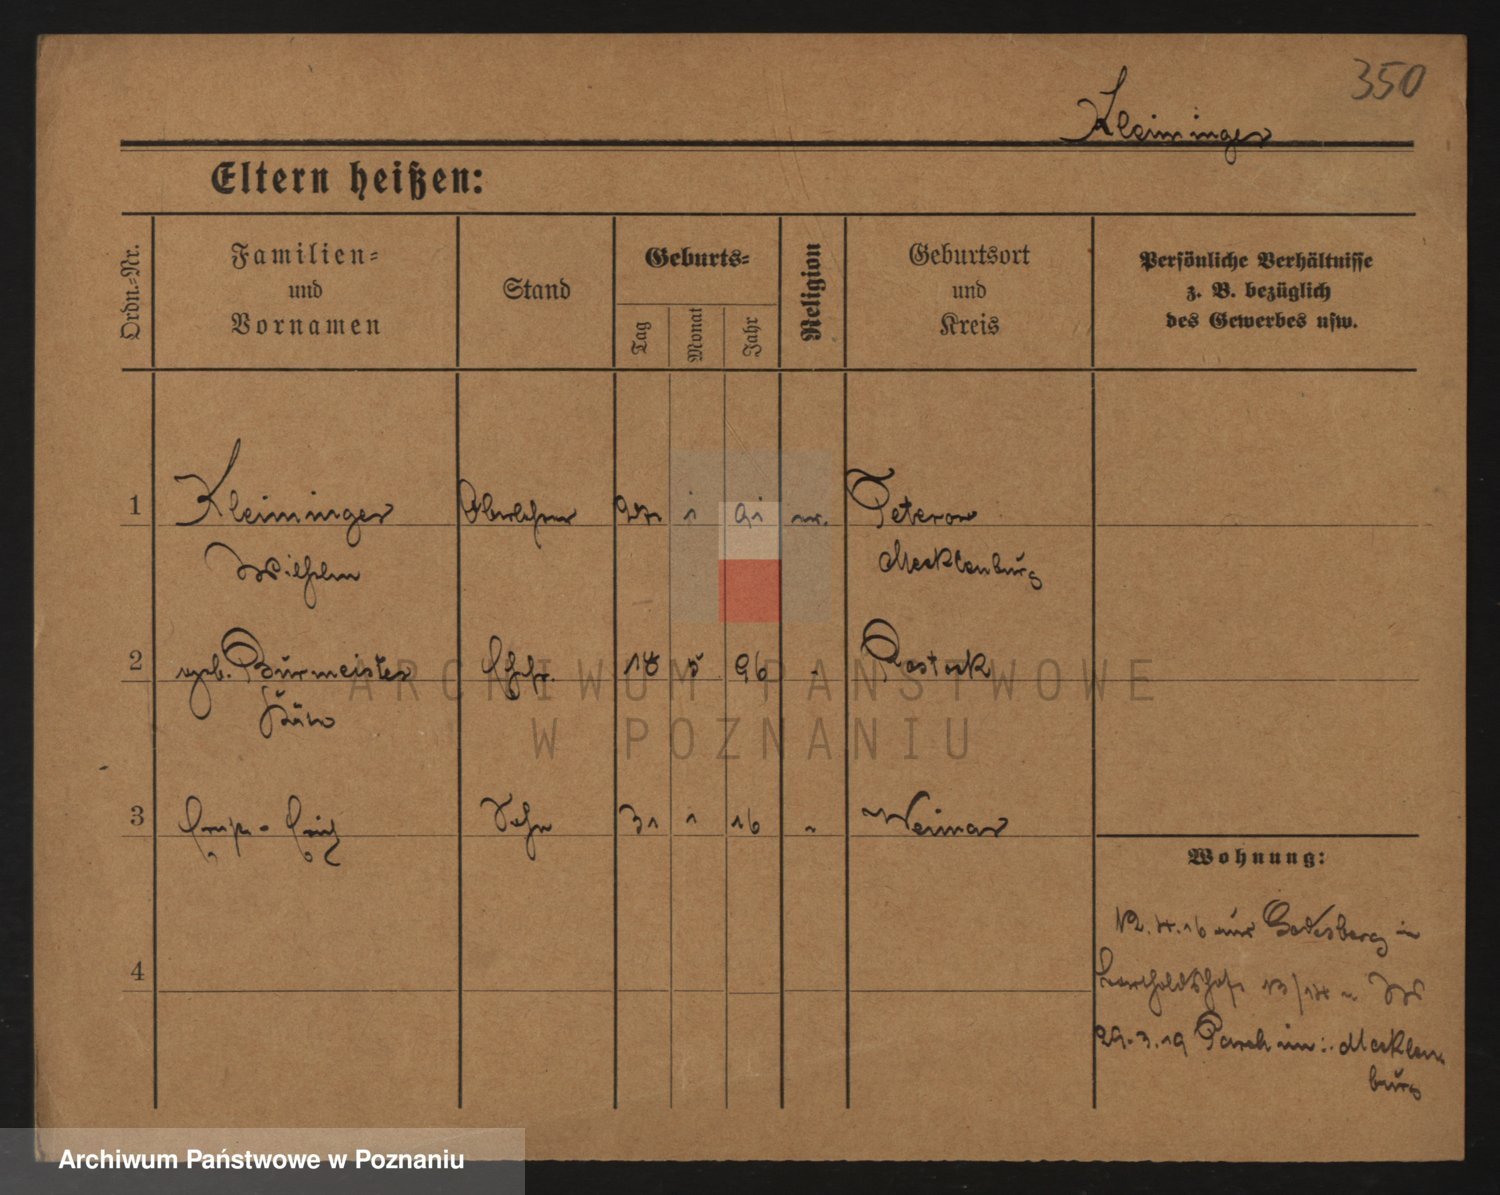 350
Kleiminger
Eltern heißen:
Ordn.-Nr.
Familien-
und
Vornamen
Stand
Geburts-
Tag
Monat
Jahr
Religion
Geburtsort
und
Kreis
Persönliche Verhältnisse
z. B. bezüglich
des Gewerbes usw.
1 Kleiminger Oberlehrer 1 91 Teterow
Wilhelm Mecklenburg
2 geb. Burmeister Ehefr. 18 5 96 " Rostock
3 Sohn 31 1 16 " Weimar
Wohnung:
12.4.16 aus Godesberg in
4
13/14
29.3.19 Parchim i. Mecklen
burg
ARCHIWUM PAŃSTWOWE
W POZNANIU
Archiwum Państwowe w Poznaniu